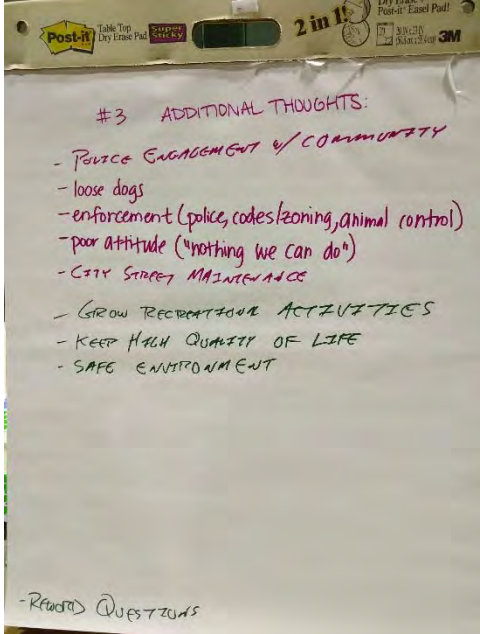 Post-it
Table Top
Dry Erase Pad
Super
Sticky
2 in 1!
Dry Erase
Post-it® Easel Pad!
20
3M
#3 ADDITIONAL THOUGHTS:
- POLICE ENGAGEMENT w/ COMMUNITY
- loose dogs
- enforcement (police, codes/zoning, animal control)
- poor attitude ("nothing we can do")
- CITY STREET MAINTENANCE
- GROW RECREATIONAL ACTIVITIES
- KEEP HIGH QUALITY OF LIFE
- SAFE ENVIRONMENT
- REWORD QUESTIONS